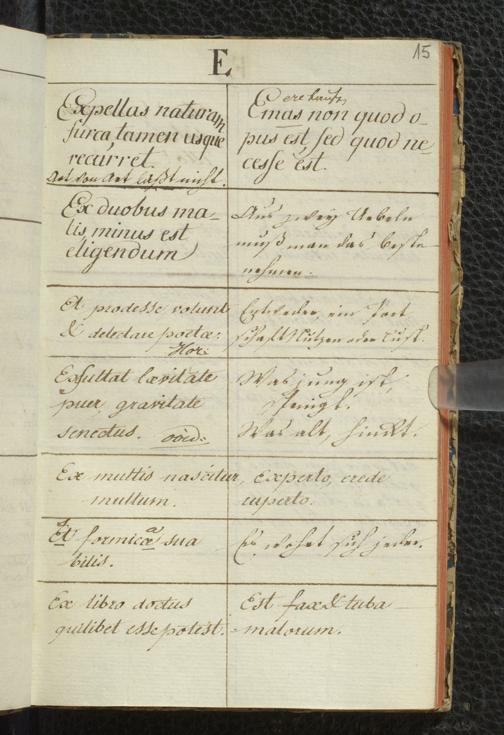 15
E
Expellas naturam
furca tamen usque
recurret.
Art von Art läßt nicht.
erekauf
Emas non quod o-
pus est sed quod ne-
cesse est.
Ex duobus ma-
lis minus est
eligendum
Aus zwey Uebeln
muß man das beste
nehmen.
Et prodesse volunt
& delectare poetae:
Hor:
Entweder, ein Poet
schafft Nutzen oder Lust.
Exsultat laevitate
puer, gravitate
senectus. ovid:
Was jung ist,
springt.
Was alt, hinkt.
Ex multis nascitur
multum.
Experto, crede
ruperto.
Et formicae sua
bilis.
Es wehret sich jeder.
Ex libro doctus
quilibet esse potest.
Est fax & tuba
malorum.